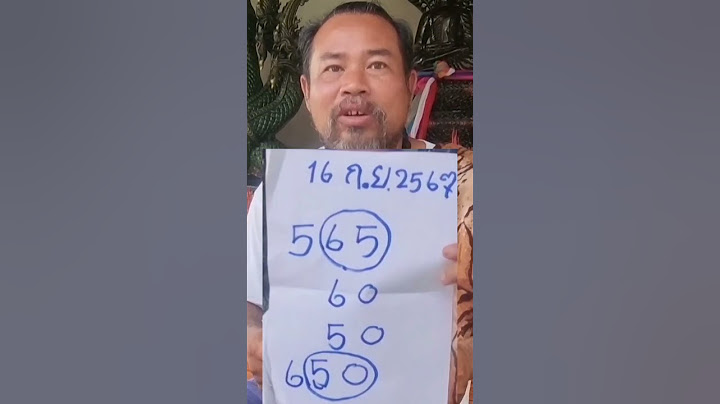 16 ก.ย. 2567
565
60
50
650